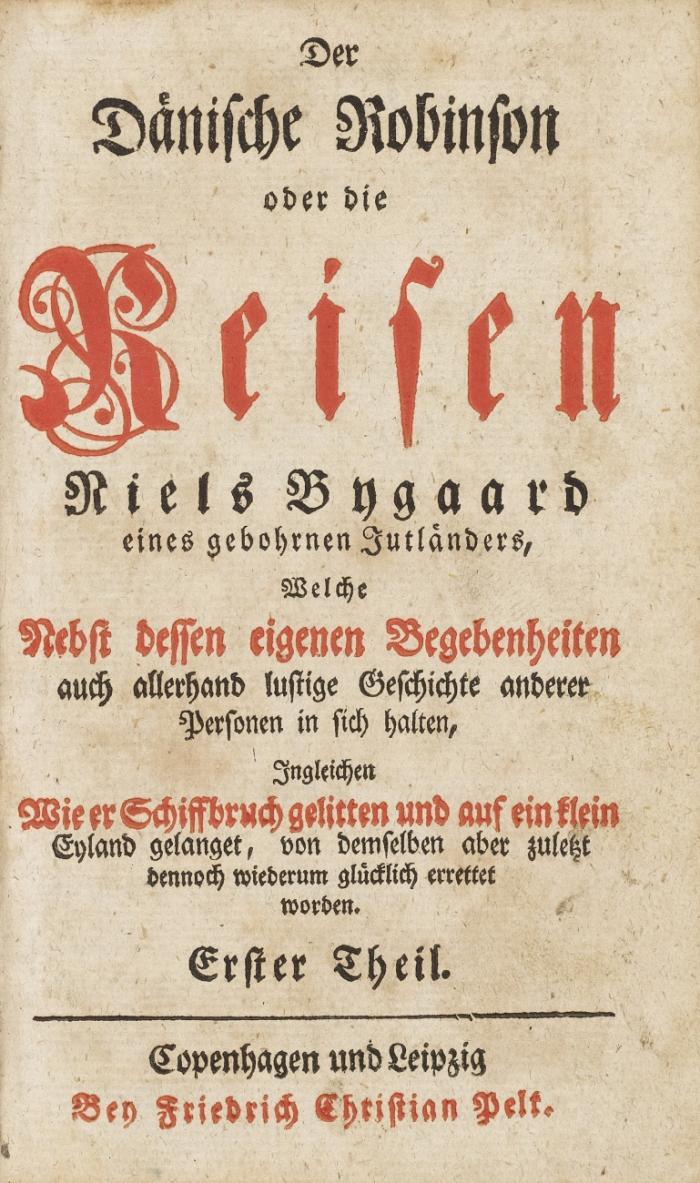 Der
Dänische Robinson
oder die
Reisen
Niels Bygaard
eines gebohrnen Jutländers,
Welche
Nebst dessen eigenen Begebenheiten
auch allerhand lustige Geschichte anderer
Personen in sich halten,
Ingleichen
Wie er Schiffbruch gelitten und auf ein klein
Eyland gelanget, von demselben aber zuletzt
dennoch wiederum glücklich errettet
worden.
Erster Theil.
Copenhagen und Leipzig
Bey Friedrich Christian Pelt.